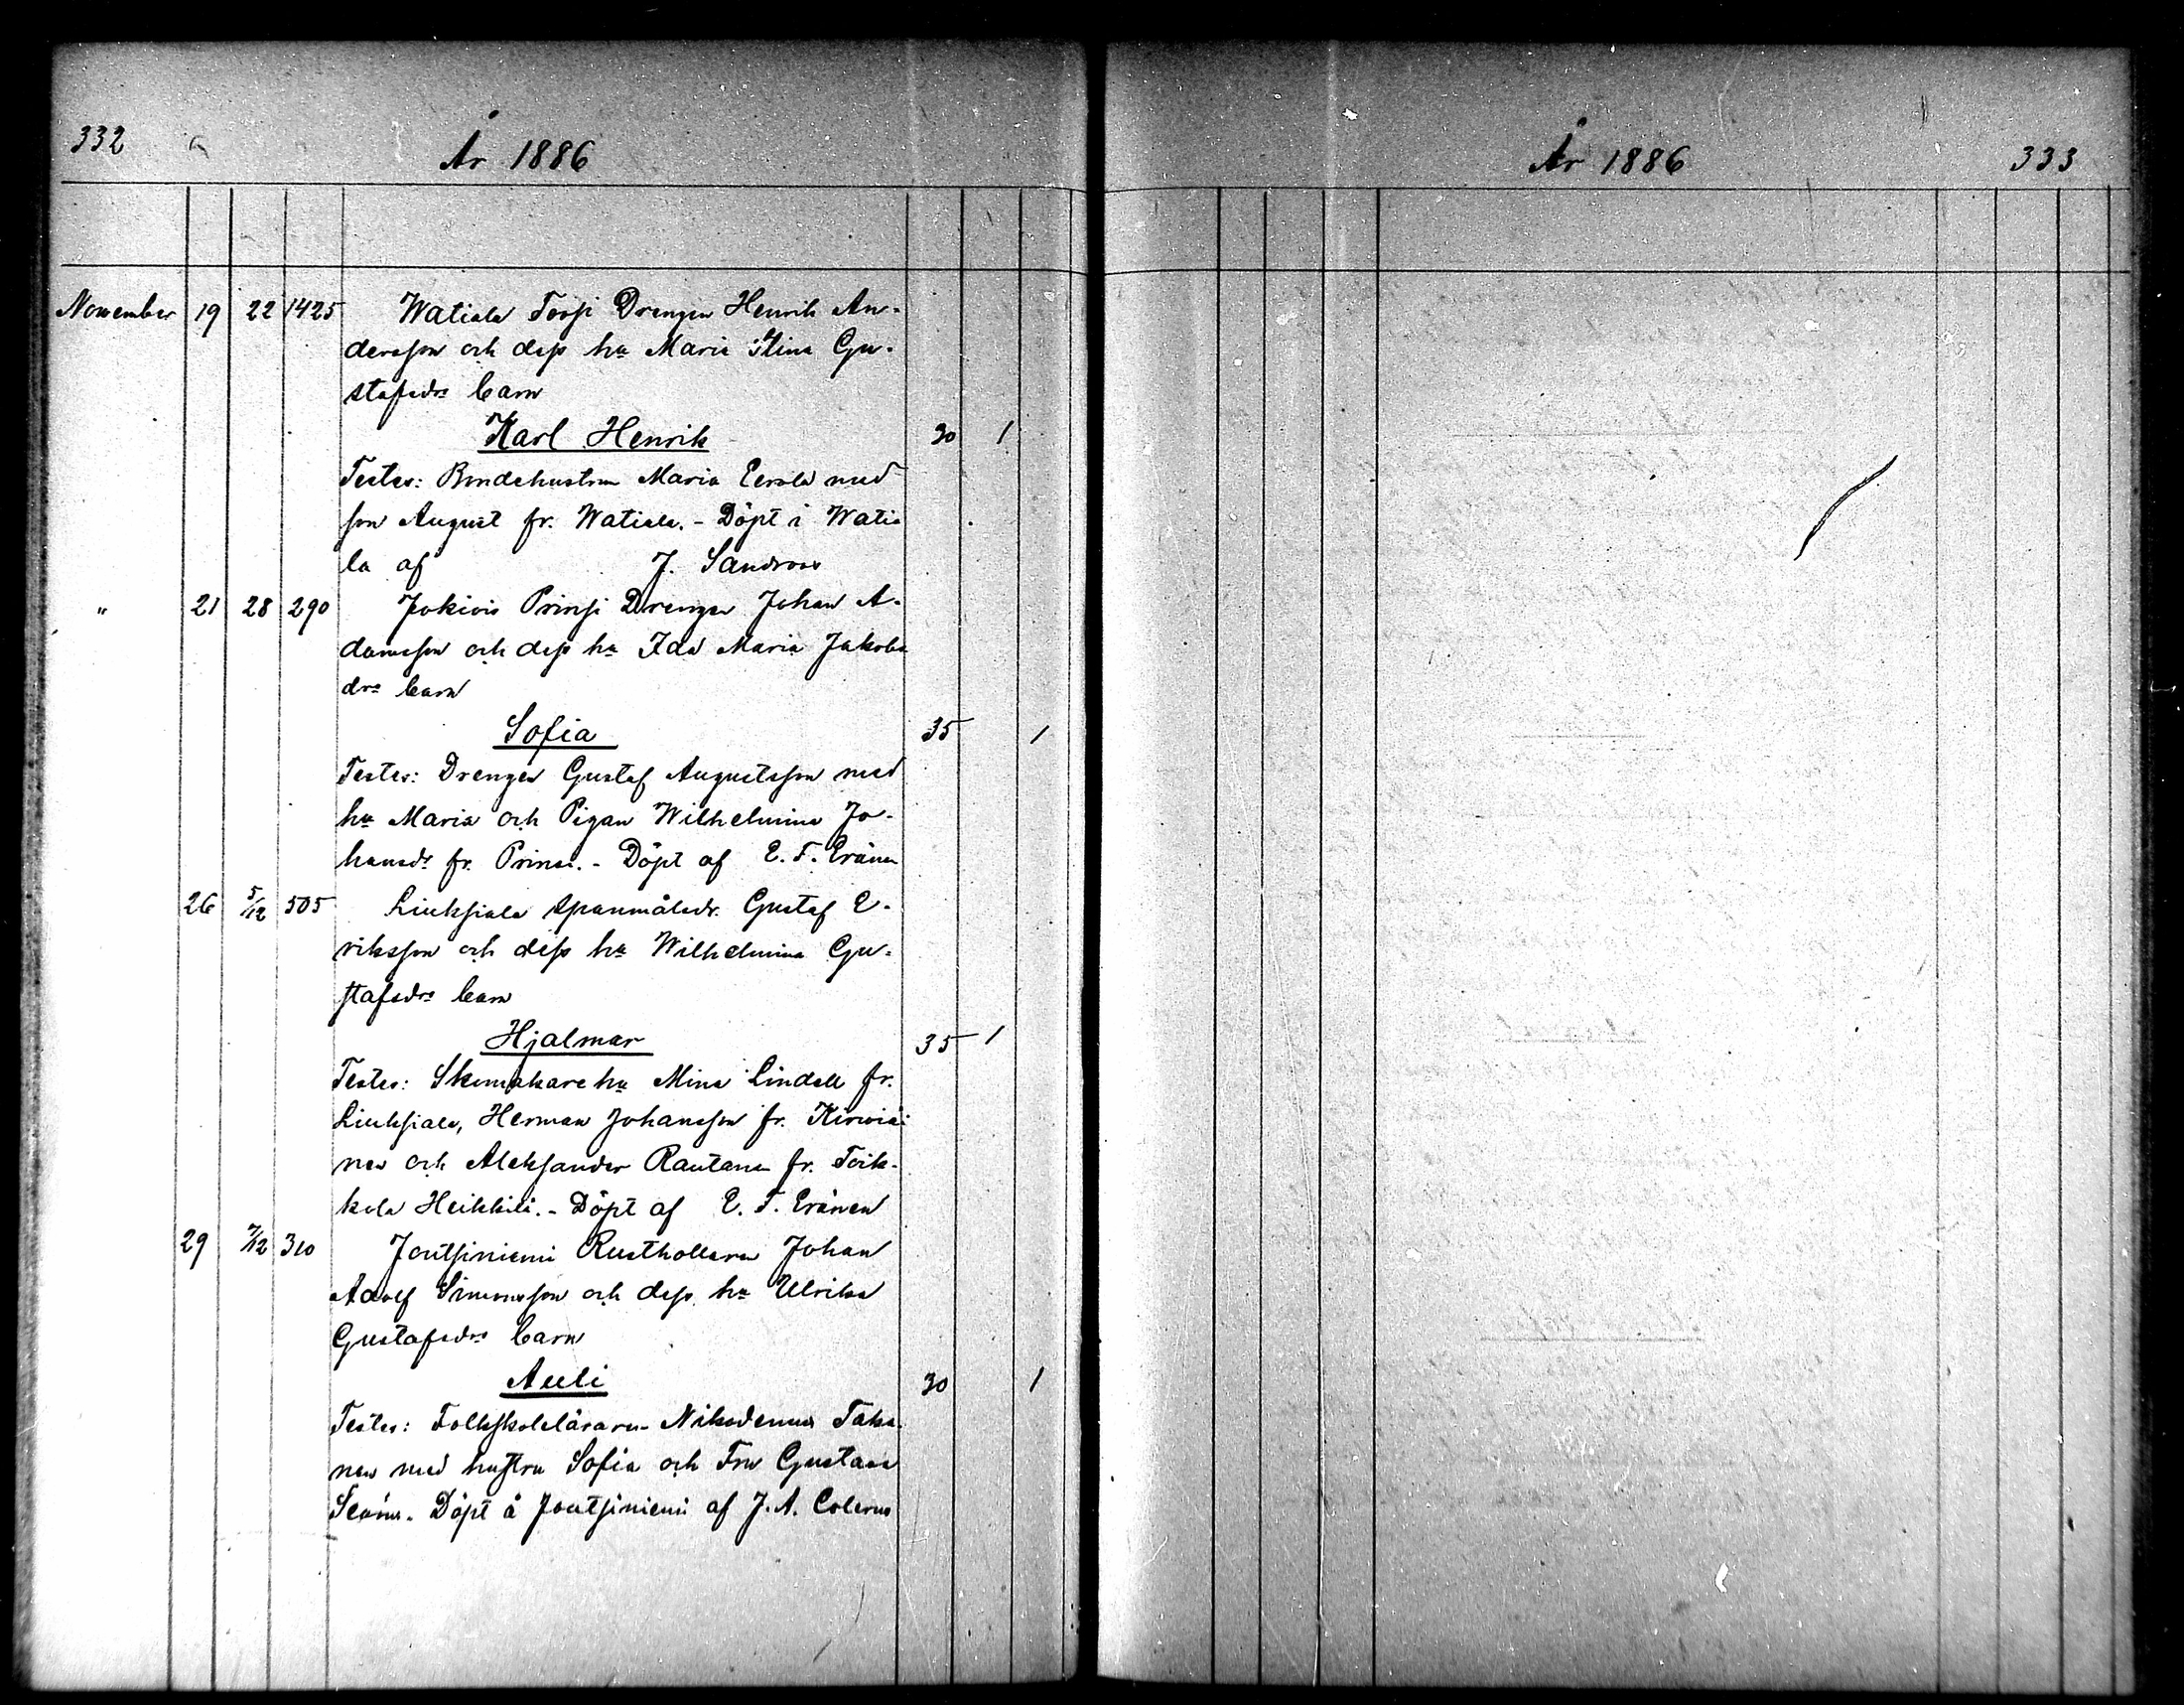 332
År 1886
November 19 22 1425 Watiala Torpi Drengen Henrik An-
dersson och dess hu Maria Stina Gu-
stafsdrs barn
Karl Henrik 30 1
Testes: Bondehustrun Maria Eerola med
son August fr. Watiala. - Döpt i Watia
la af J. Sandroos
" 21 28 290 Jokiois Prinsi Drengen Johan A-
damsson och dess hu Ida Maria Jakobs
drs barn
Sofia 35 1
Testes: Drengen Gustaf Augustsson med
hu Maria och Pigan Wilhelmina Jo-
hansdr fr. Prinsi. - Döpt af E. F. Eränen
26 5/12 505 Liuksiala spanmålsdr. Gustaf E-
riksson och dess hu Wilhelmina Gu-
stafsdrs barn
Hjalmar 35 1
Testes: Skomakare hu Mina Lindell fr.
Liuksiala, Herman Johansson fr. Kirwiä-
nen och Aleksander Rautanen fr. Toik-
kola Heikkilä. - Döpt af E. F. Eränen
29 7/12 310 Joutsiniemi Rusthollaren Johan
Adolf Simonsson och dess hu Ulrika
Gustafsdrs barn
Auli 30 1
Testes: Folkskoleläraren Nikodemus Taka-
nen med hustru Sofia och Fru Gustava
Döpt å Joutsiniemi af J. A. Colerus
År 1886
333